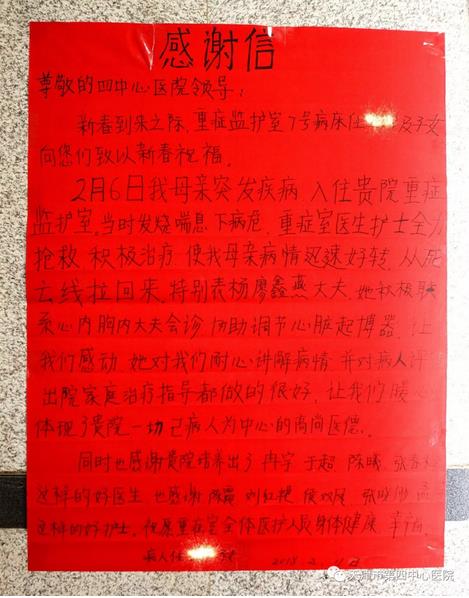 感谢信
尊敬的四中心医院领导：
新春到来之际，重症监护室7号病床任 及子女
向您们致以新春祝福。
2月6日我母亲突发疾病，入住贵院重症
监护室。当时发烧喘息下病危，重症室医生护士全力
抢救，积极治疗，使我母亲病情迅速好转，从死
亡线拉回来，特别表杨廖鑫燕大夫。她积极联
系心内胸内大夫会诊，协助调节心脏起搏器，让
我们感动，她对我们耐心讲解病情，并对病人评
出院家庭治疗指导都做的很好，让我们暖心
体现了贵院一切已病人为中心的高尚医德。
同时也感谢贵院培养出了冉宇 于超 陈曦 张春
这样的好医生，也感谢 刘红艳 侯双 张
这样的好护士。 重症室全体医护人员身体健康，幸福。
病人任 2018.2.11日
天津市第四中心医院